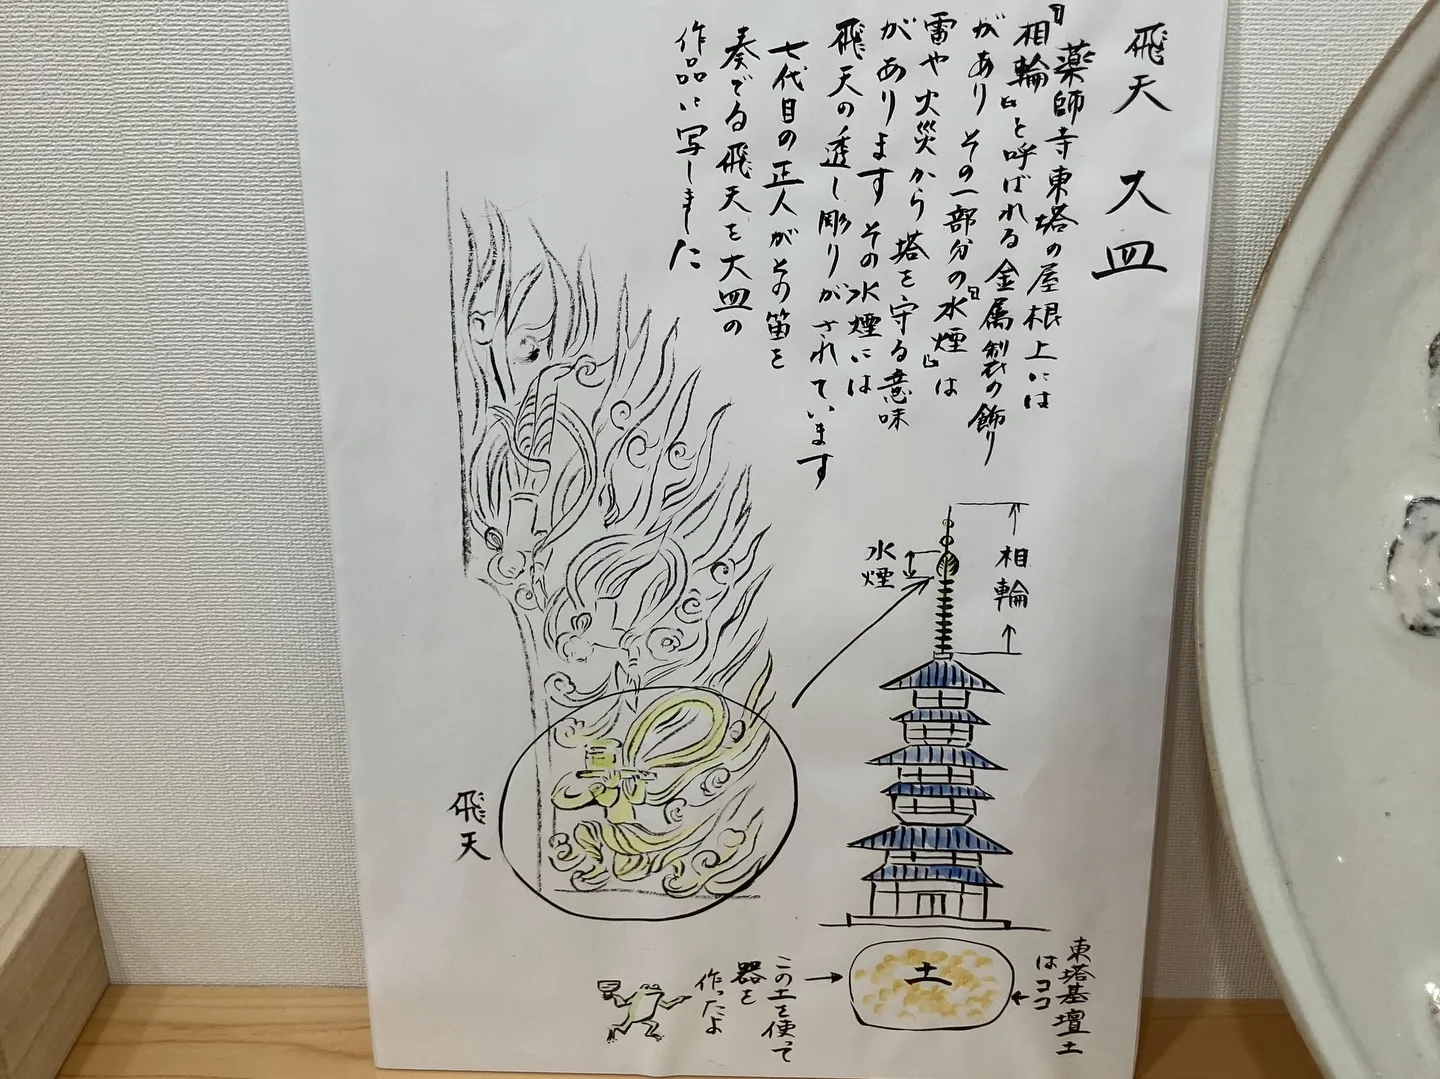 飛天 大皿
薬師寺東塔の屋根上には
『相輪』と呼ばれる金属製の飾り
があり その一部分の『水煙』は
雷や火災から塔を守る意味
があります その水煙には
飛天の透し彫りがされています
七代目の正人がその笛を
奏でる飛天を大皿の
作品に写しました
相輪
水煙
飛天
東塔基壇土
はココ
土
この土を使って
器を
作ったよ